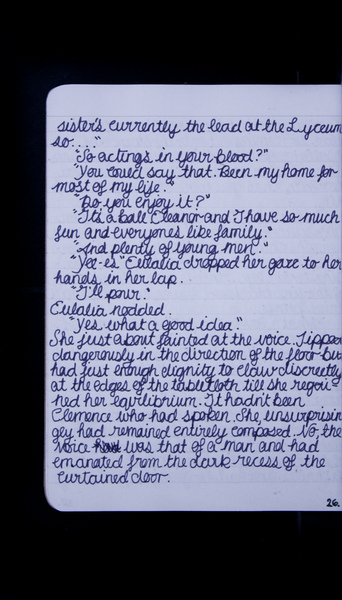 sister's currently the lead at the Lyceum
so...."
"So acting's in your blood?"
"You could say that. Been my home for
most of my life."
"Do you enjoy it?"
"It's a ball Eleanor and I have so much
fun and everyone's like family."
"And plenty of young men."
"Ye-es" Eulalia dropped her gaze to her
hands in her lap.
"I'll pour."
Eulalia nodded.
"Yes what a good idea."
She just about fainted at the voice. Tipped
dangerously in the direction of the floor but
had just enough dignity to claw discreetly
at the edges of the tablecloth till she regai-
ned her equilibrium. It hadn't been
Clemence who had spoken. She, unsurprisin
gly had remained entirely composed. No, the
voice was that of a man and had
emanated from the dark recess of the
curtained door.
26.